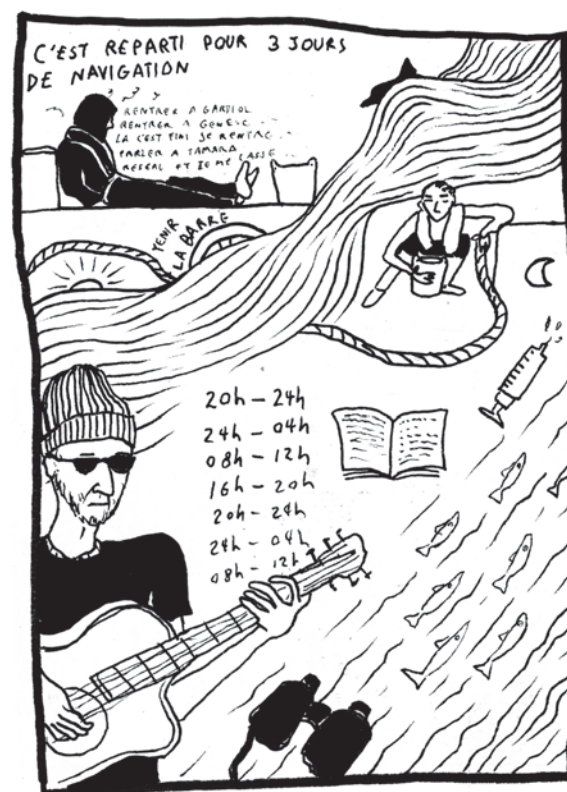 C'EST REPARTI POUR 3 JOURS
DE NAVIGATION
RENTRER A GARDIOL
RENTRER A GENEVE
LA C'EST FINI JE RENTRE
PARLER A TAMARA
ET JE ME CASSE
TENIR
LA BARRE
20h – 24h
24h – 04h
08h – 12h
16h – 20h
20h – 24h
24h – 04h
08h – 12h